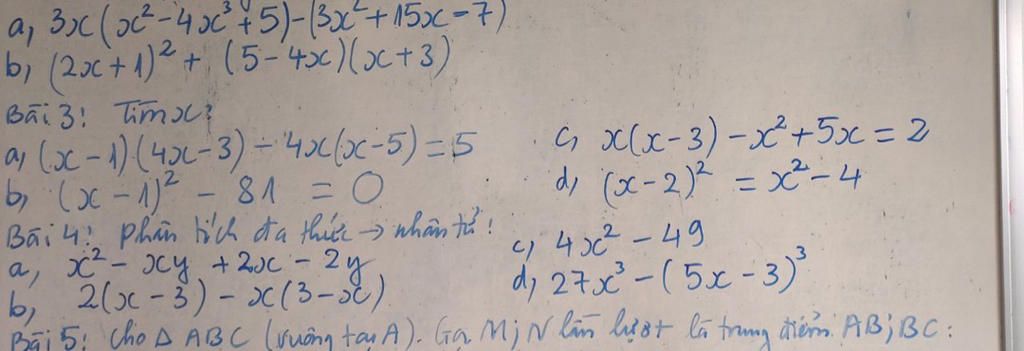 a, 3x(x² - 4x³ + 5) - (3x² + 15x - 7)
b, (2x + 1)² + (5 - 4x)(x + 3)
Bài 3: Tìm x:
a, (x - 1)(4x - 3) - 4x(x - 5) = 5
b, (x - 1)² - 81 = 0
c, x(x - 3) - x² + 5x = 2
d, (x - 2)² = x² - 4
Bài 4: Phân tích đa thức → nhân tử:
a, x² - xy + 2x - 2y
b, 2(x - 3) - x(3 - x)
c, 4x² - 49
d, 27x³ - (5x - 3)³
Bài 5: Cho Δ ABC (vuông tại A). Gọi M; N lần lượt là trung điểm AB; BC: